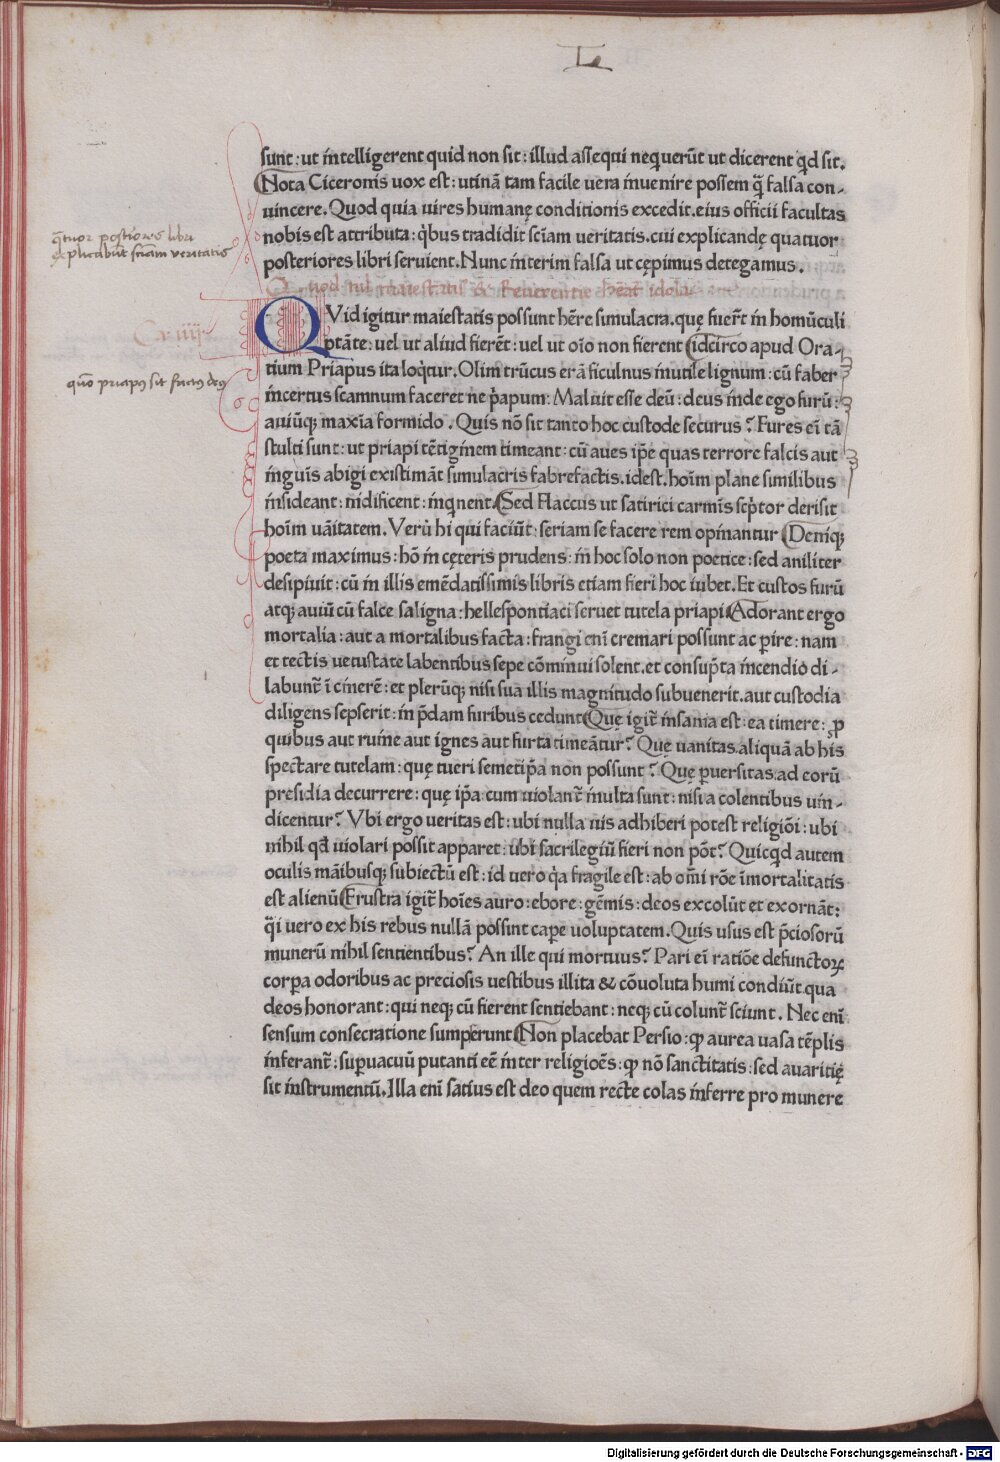 sunt: ut intelligerent quid non sit: illud assequi neqverūt ut dicerent qd sit.
Nota Ciceronis uox est: utinā tam facile uera inuenire possem q̄ falsa con-
uincere. Quod quia uires humanę conditionis excedit. eius officii facultas
nobis est attributa: qbus tradidit sciam ueritatis. cui explicandę quatuor
posteriores libri seruient. Nunc interim falsa ut cępimus detegamus.
q̄tuor posteriores libri
explicabūt sciam ueritatis
Quod nil maiestatis & Reuerentie hēāt idola
Ca iiij
QVid igitur maiestatis possunt hēre simulacra. quę fuer̄t in homūculi
ptāte: uel ut aliud fierēt: uel ut oīo non fierent Idcirco apud Ora-
tium Priapus ita loqt̄ur. Olim trūcus erā ficulnus inutile lignum: cū faber
quō priapus sit factus deus
incertus scamnum faceret ne p̄apum: Maluit esse deū: deus inde ego furū:
auiūq; maxīa formido. Quis nō sit tanto hoc custode securus? Fures eī tā
stulti sunt: ut priapi tētiginem timeant: cū aues ip̄e quas terrore falcis aut
inguīs abigi existimāt simulacris fabrefactis. idest. hoīm plane similibus
insideant: nidificent: inqnent. Sed Flaccus ut satirici carmīs scp̄tor derisit
hoīm uāītatem. Verū hi qui faciūt: seriam se facere rem opinantur Deniq;
poeta maximus: hō in cęteris prudens: in hoc solo non poetice: sed aniliter
desipuit: cū in illis emēdatissimis libris etiam fieri hoc iubet. Et custos furū
atq; auiū cū falce saligna: hellespontiaci seruet tutela priapi Adorant ergo
mortalia: aut a mortalibus facta: frangi enī cremari possunt ac pire: nam
et tectis uetustate labentibus sepe cōminui solent. et consūpta incendio di-
labunt̄ ī cinerē: et plerūq; nisi sua illis magnitudo subuenerit. aut custodia
diligens sepserit: in p̄dam furibus cedunt Quę igit̄ insania est: ea timere: p
quibus aut ruine aut ignes aut furta timeātur? Quę uanitas. aliquā ab his
spectare tutelam: quę tueri semetip̄a non possunt? Quę puersitas. ad eorū
presidia decurrere: quę ip̄a cum uiolant̄ inulta sunt: nisi a colentibus uin-
dicentur? Vbi ergo ueritas est: ubi nulla uis adhiberi potest religiōi: ubi
nihil qd uiolari possit apparet: ubi sacrilegiū fieri non pōt? Quicqd autem
oculis māibusq; subiectū est: id uero qa fragile est: ab omī rōe īmortalitatis
est alienū Frustra igit̄ hoīes auro: ebore: gēmis: deos excolūt et exornāt:
q̄i uero ex his rebus nullā possint cape uoluptatem. Quis usus est p̄ciosorū
munerū nihil sentientibus? An ille qui mortuus? Pari eī ratiōe defunctoꝝ
corpa odoribus ac preciosis uestibus illita & cōuoluta humi condiūt. qua
deos honorant: qui neq; cū fierent sentiebant: neq; cū colunt̄ sciunt. Nec enī
sensum consecratione sumpserunt Non placebat Persio: ꝙ aurea uasa tēplis
inferant̄: supuacuū putanti eē inter religioēs: ꝙ nō sanctitatis: sed auaritię
sit instrumentū. Illa enī satius est deo quem recte colas inferre pro munere
Digitalisierung gefördert durch die Deutsche Forschungsgemeinschaft - DFG